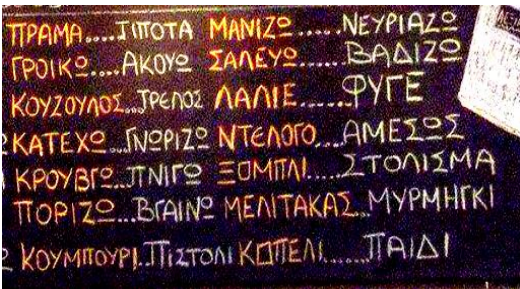 ΠΡΑΜΑ....ΤΙΠΟΤΑ ΜΑΝΙΖΩ......ΝΕΥΡΙΑΖΩ
ΓΡΟΙΚΩ....ΑΚΟΥΩ ΣΑΛΕΥΩ......ΒΑΔΙΖΩ
ΚΟΥΖΟΥΛΟΣ..ΤΡΕΛΟΣ ΛΑΛΙΕ......ΦΥΓΕ
ΚΑΤΕΧΩ...ΓΝΩΡΙΖΩ ΝΤΕΛΟΓΟ....ΑΜΕΣΩΣ
ΚΡΟΥΒΓΩ..ΠΝΙΓΩ ΞΟΜΠΛΙ.....ΣΤΟΛΙΣΜΑ
ΠΟΡΙΖΩ...ΒΓΑΙΝΩ ΜΕΛΙΤΑΚΑΣ..ΜΥΡΜΗΓΚΙ
ΚΟΥΜΠΟΥΡΙ..ΠΙΣΤΟΛΙ ΚΩΠΕΛΙ.......ΠΑΙΔΙ